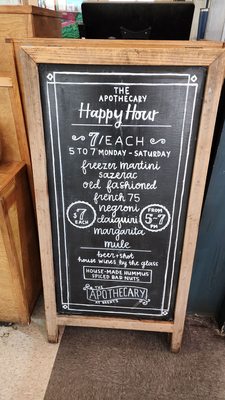 THE
APOTHECARY
Happy Hour
7/EACH
5 TO 7 MONDAY - SATURDAY
freezer martini
sazerac
old fashioned
french 75
negroni
daiquiri
margarita
mule
$7
EACH
FROM
5-7
PM
beer+shot
house wines by the glass
HOUSE-MADE HUMMUS
SPICED BAR NUTS
THE
APOTHECARY
AT BRENT'S